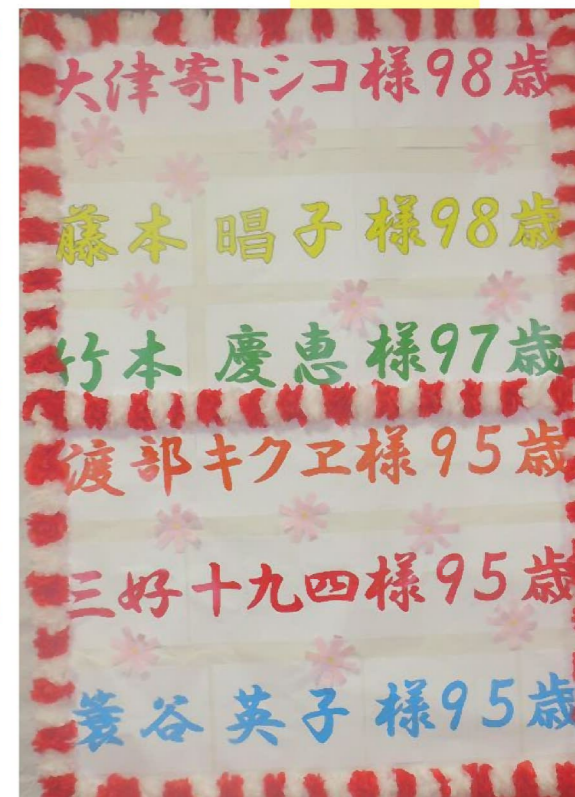 大津寄トシコ様98歳
藤本 昌子 様98歳
竹本 慶恵 様97歳
渡部キクヱ様95歳
三好十九四様95歳
簑谷 英子 様95歳